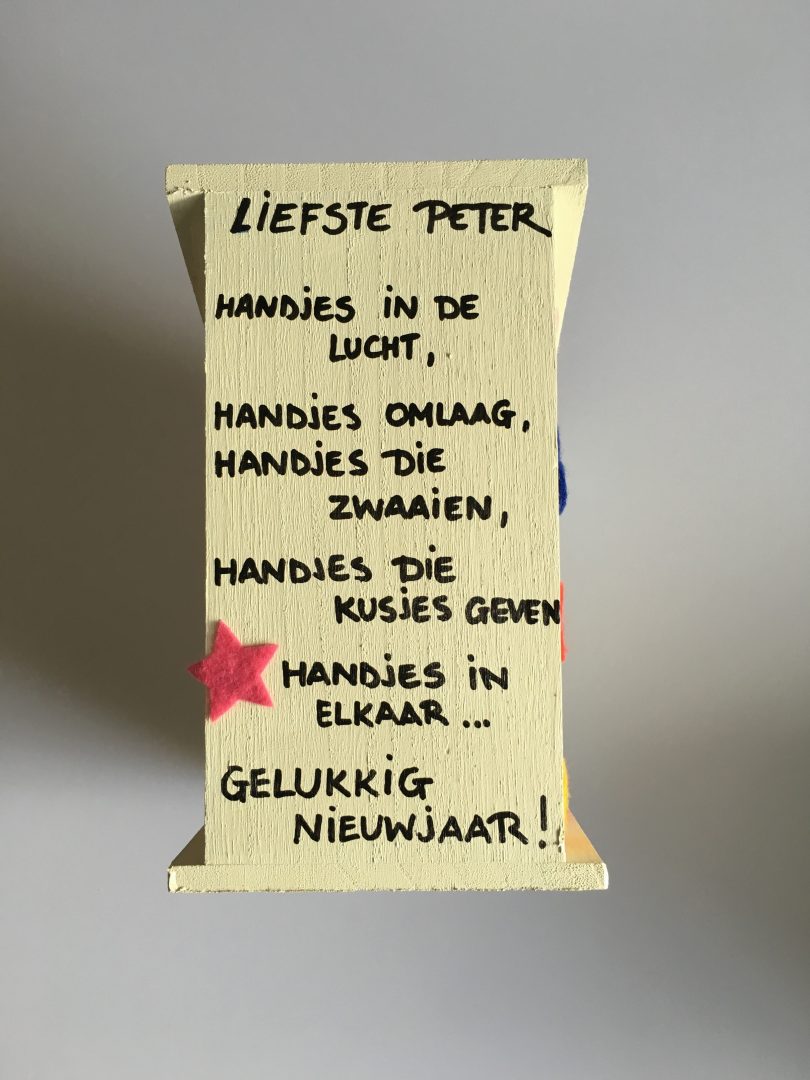 LIEFSTE PETER
HANDJES IN DE
LUCHT,
HANDJES OMLAAG,
HANDJES DIE
ZWAAIEN,
HANDJES DIE
KUSJES GEVEN
HANDJES IN
ELKAAR...
GELUKKIG
NIEUWJAAR!